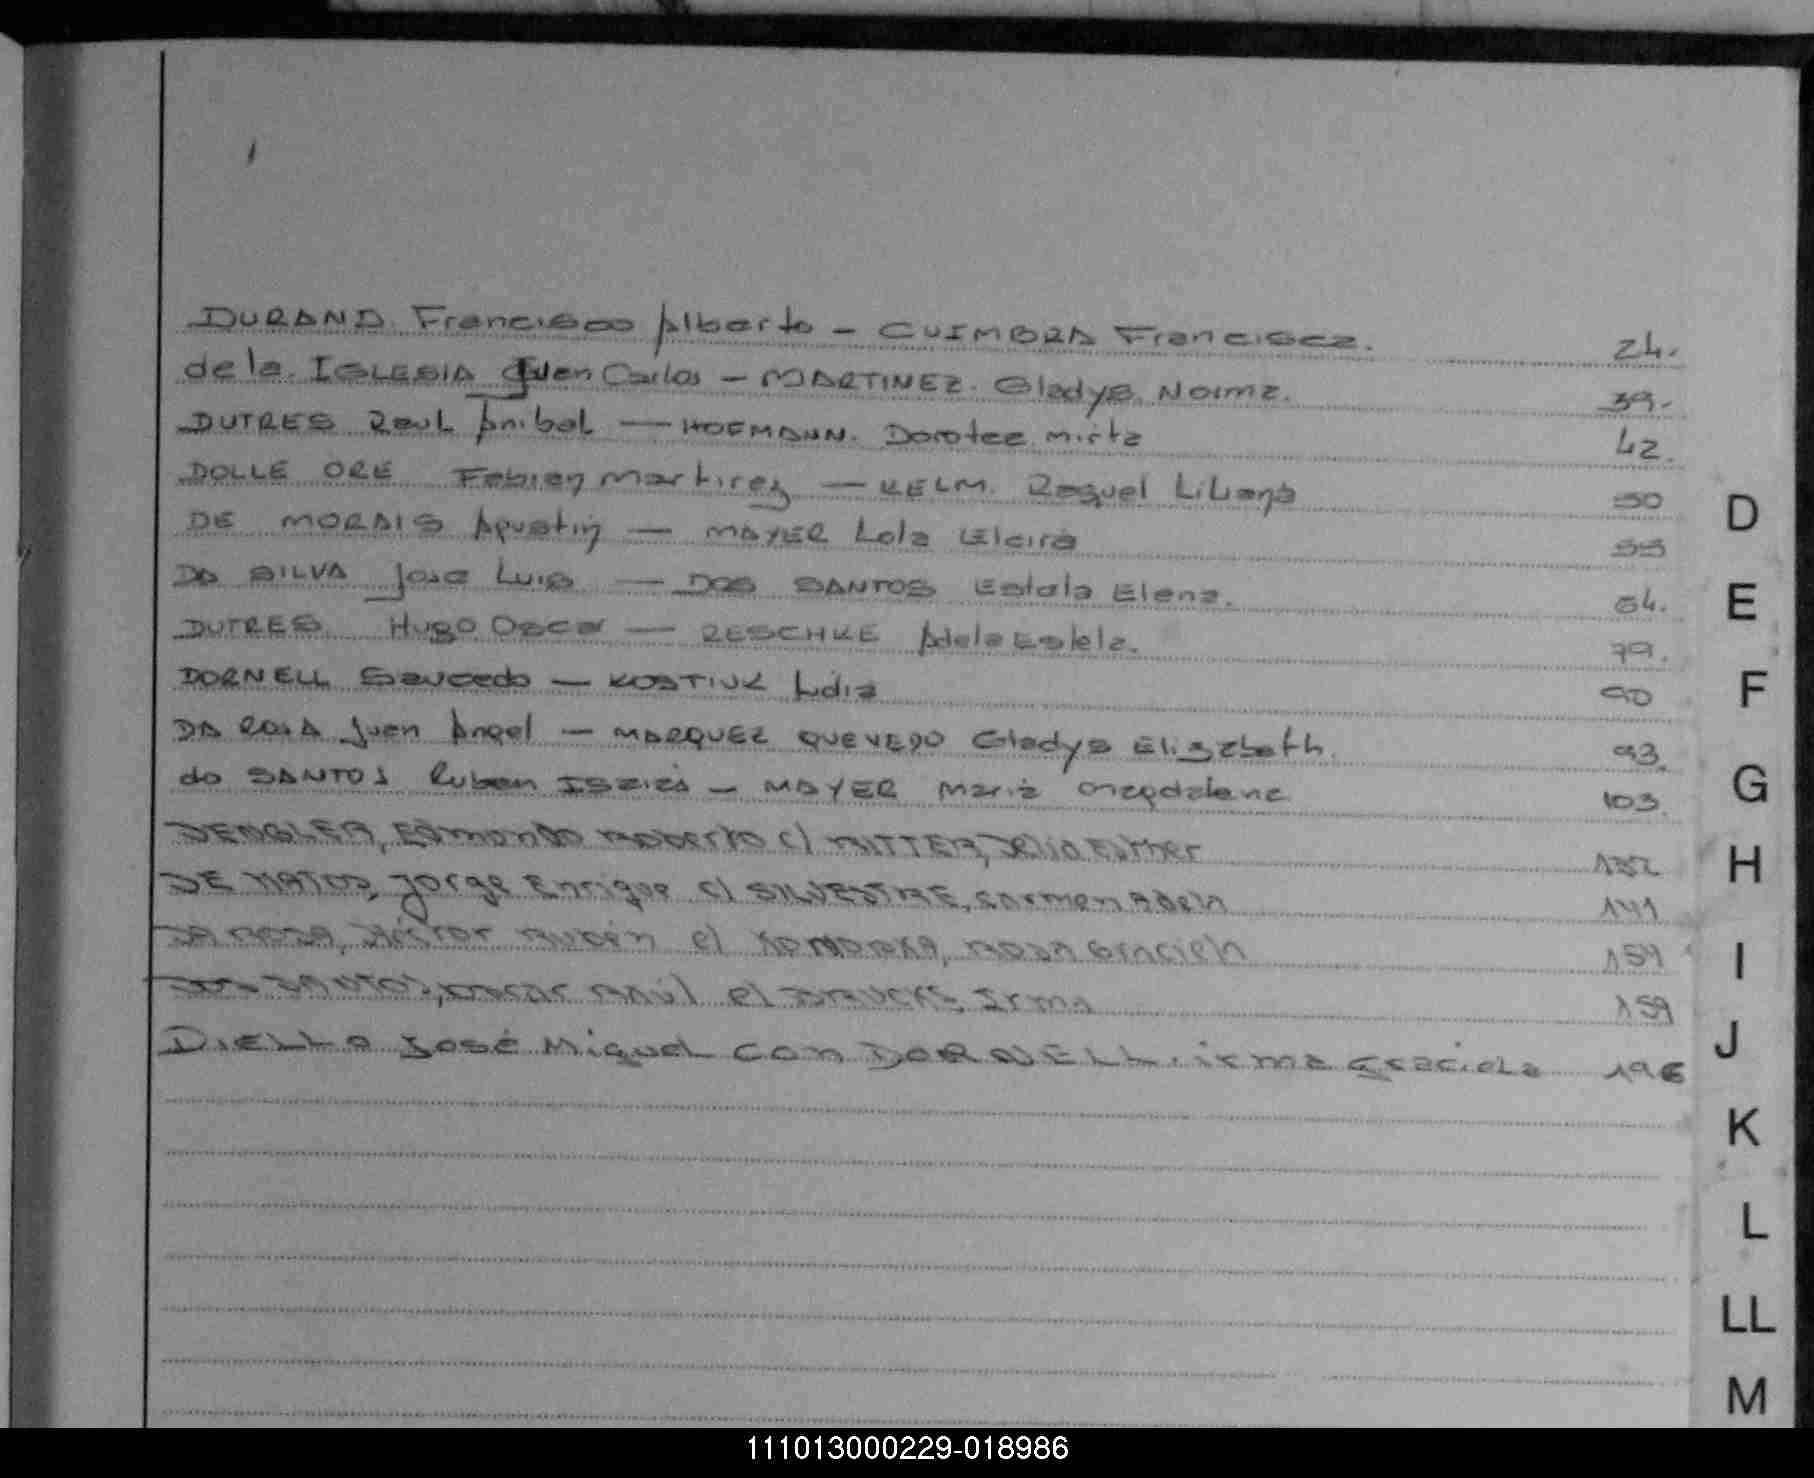 DURAND Francisco Alberto - CUIMBRA Francisca. 24.
de la IGLESIA Juan Carlos - MARTINEZ. Gladys Norma. 39.
DUTRES Raul Anibal - HOFMANN. Dorotea Mirta 42.
DOLLE ORE Fabian Martirez - KELM. Raquel Liliana 50
DE MORAIS Agustin - MAYER Lola Elcira 55
DA SILVA Jose Luis - DOS SANTOS Estela Elena. 64.
DUTRES Hugo Oscar - RESCHKE Adela Estela. 79.
DORNELL Saucedo - KOSTIUK Lidia 90
DA ROSA Juan Angel - MARQUEZ QUEVEDO Gladys Elizabeth. 93.
do SANTOS Ruben Isaias - MAYER Maria Magdalena 103.
DENGLER, Edmundo Roberto c/ RITTER, Delia Esther 132
DE MATOS, Jorge Enrique c/ SILVESTRE, Carmen Adela 141
DA ROSA, Héctor Rubén c/ Rosa Graciela 154
DOS SANTOS, Oscar Raúl c/ Irma 159
DIELLO José Miguel con DORNELL. irma Graciela 196
D
E
F
G
H
I
J
K
L
LL
M
111013000229-018986